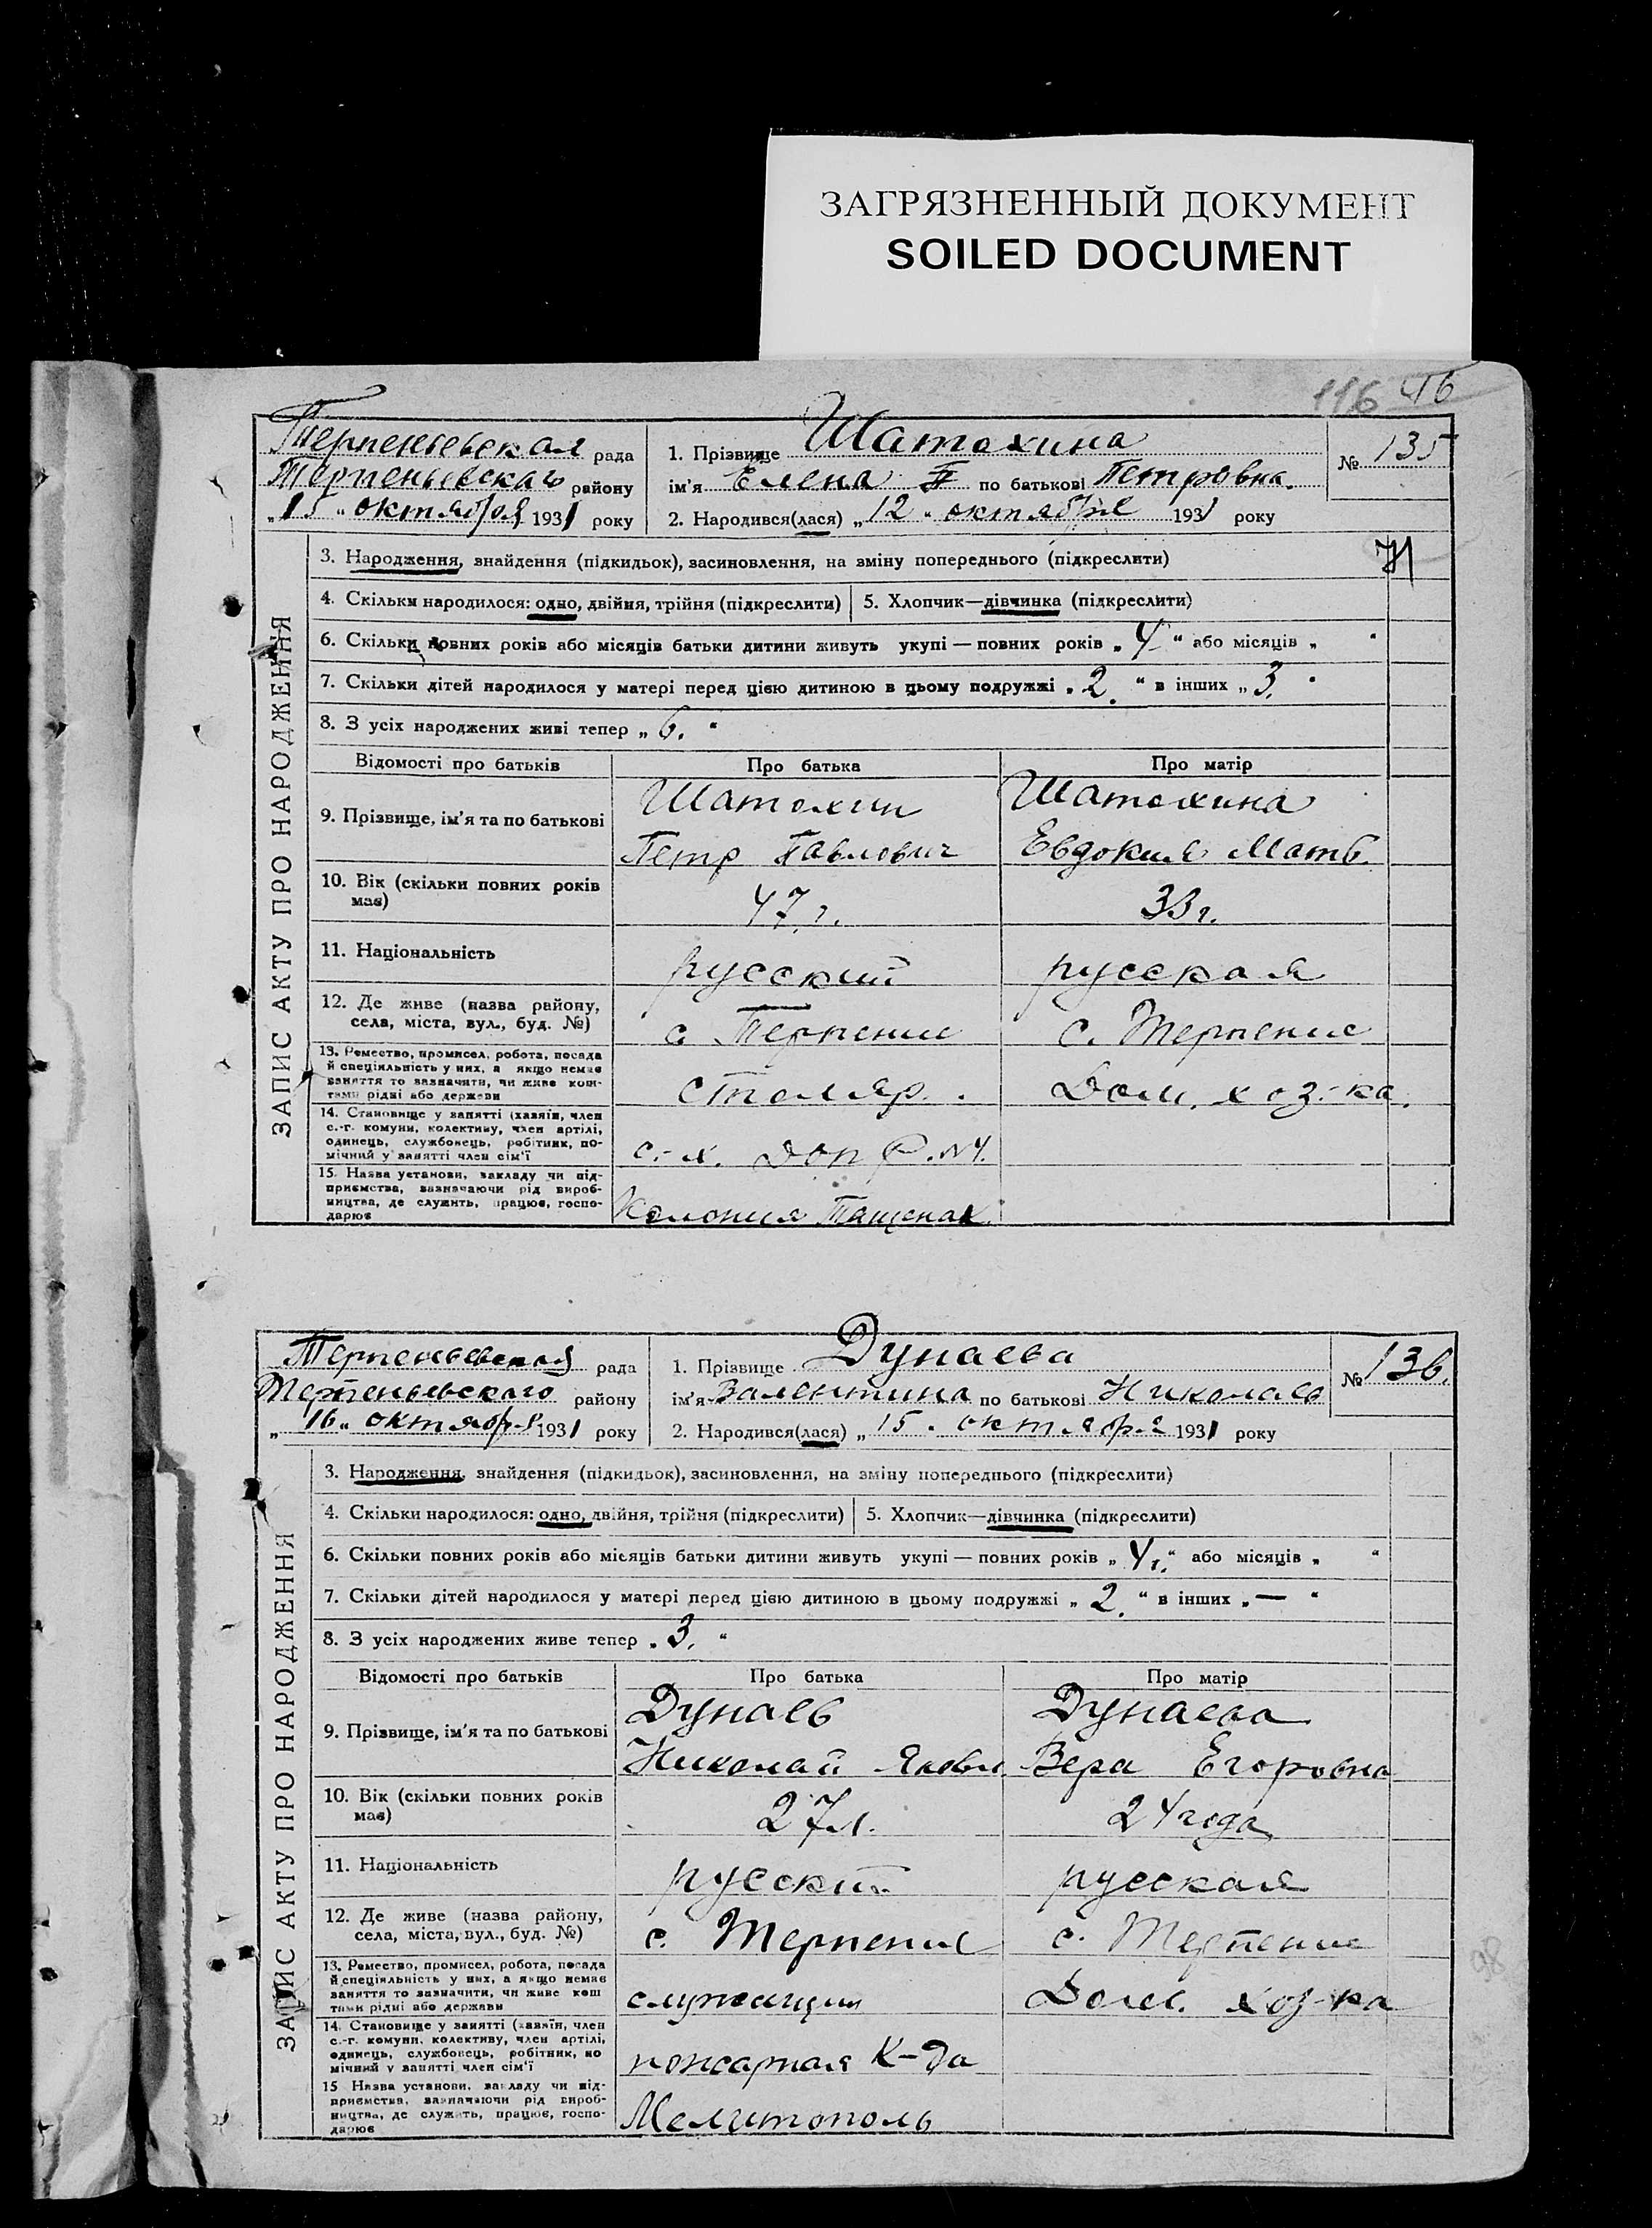 ЗАГРЯЗНЕННЫЙ ДОКУМЕНТ
SOILED DOCUMENT
116
ЗАПИС АКТУ ПРО НАРОДЖЕННЯ
Терпеньевская рада
Терпеньевскаго району
„15“ октября 1931 року
1. Прізвище Шатохина
ім'я Елена по батькові Петровна.
2. Народився(лася) „12“ октября 1931 року
№ 135
3. Народження, знайдення (підкидьок), засиновлення, на зміну попереднього (підкреслити)
4. Скільки народилося: одно, двійня, трійня (підкреслити) 5. Хлопчик—дівчинка (підкреслити)
6. Скільки повних років або місяців батьки дитини живуть укупі — повних років „4“ або місяців „ “
7. Скільки дітей народилося у матері перед цією дитиною в цьому подружжі „2.“ в інших „3.“
8. З усіх народжених живі тепер „6.“
Відомості про батьків Про батька Про матір
9. Прізвище, ім'я та по батькові Шатохин Шатохина
Петр Павлович Евдокия Матв.
10. Вік (скільки повних років має) 47 г. 33 г.
11. Національність русский русская
12. Де живе (назва району, села, міста, вул., буд. №) с. Терпение с. Терпение
13. Ремество, промисел, робота, посада й спеціяльність у них, а якщо немає заняття то зазначити, чи живе коштами рідні або держави столяр. Дом. хоз-ка.
14. Становище у занятті (хазяїн, член с.-г. комуни, колективу, член артілі, одинець, службовець, робітник, помічний у занятті член сім'ї с.-х. №4.
15. Назва установи, закладу чи підприємства, зазначаючи рід виробництва, де служить, працює, господарює Колония Тащенак.
ЗАПИС АКТУ ПРО НАРОДЖЕННЯ
Терпеньевская рада
Терпеньевскаго району
„16“ октября 1931 року
1. Прізвище Дунаева
ім'я Валентина по батькові Николаев
2. Народився(лася) „15“ октября 1931 року
№ 136.
3. Народження, знайдення (підкидьок), засиновлення, на зміну попереднього (підкреслити)
4. Скільки народилося: одно, двійня, трійня (підкреслити) 5. Хлопчик—дівчинка (підкреслити)
6. Скільки повних років або місяців батьки дитини живуть укупі — повних років „4 г.“ або місяців „ “
7. Скільки дітей народилося у матері перед цією дитиною в цьому подружжі „2.“ в інших „—“
8. З усіх народжених живе тепер „3.“
Відомості про батьків Про батька Про матір
9. Прізвище, ім'я та по батькові Дунаев Дунаева
Николай Яковл. Вера Егоровна
10. Вік (скільки повних років має) 27 л. 24 года
11. Національність русский русская
12. Де живе (назва району, села, міста, вул., буд. №) с. Терпение с. Терпение
13. Ремество, промисел, робота, посада й спеціяльність у них, а якщо немає заняття то зазначити, чи живе коштами рідні або держави служащий Дом. хоз-ка
14. Становище у занятті (хазяїн, член с.-г. комуни, колективу, член артілі, одинець, службовець, робітник, помічний у занятті член сім'ї пожарная К-да
15 Назва установи, закладу чи підприємства, зазначаючи рід виробництва, де служить, працює, господарює Мелитополь
98